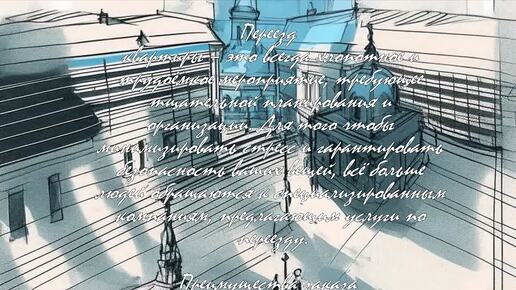 Переезд
квартиры – это всегда хлопотное и
трудоемкое мероприятие, требующее
тщательной планирования и
организации. Для того чтобы
минимизировать стресс и гарантировать
безопасность ваших вещей, всё больше
людей обращаются к специализированным
компаниям, предлагающим услуги по
переезду.
Преимущества заказа